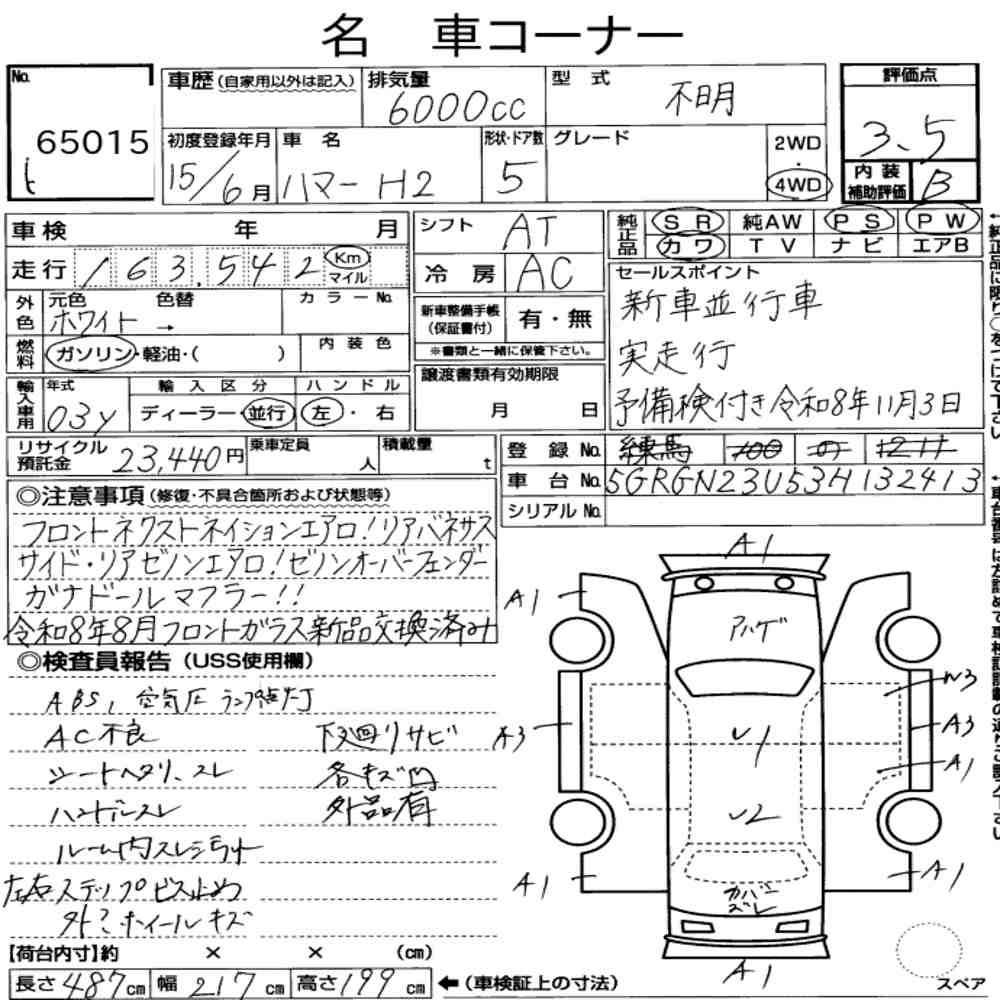 名 車コーナー
No. 65015
車歴(自家用以外は記入) 排気量 6000cc 型式 不明
評価点 3.5
初度登録年月 15/6月 車名 ハマー H2 形状・ドア数 5 グレード 2WD・4WD
内装補助評価 B
車検 年 月
走行 163,542 Km マイル
外色 元色 ホワイト 色替 → カラーNo.
燃料 ガソリン・軽油・( ) 内装色
輸入車用 年式 03y 輸入区分 ディーラー・並行 ハンドル 左・右
シフト AT
冷房 AC
新車整備手帳(保証書付) 有・無
※書類と一緒に保管下さい。
譲渡書類有効期限
月 日
純正品 SR 純AW PS PW
カワ TV ナビ エアB
セールスポイント
新車並行車
実走行
予備検付き令和8年11月3日
リサイクル預託金 23,440円 乗車定員 人 積載量 t
登録No. 練馬 100
車台No. 5GRGN23U53H132413
シリアルNo.
◎注意事項(修復・不具合箇所および状態等)
フロントネクストネイションエアロ!リアバネサス
サイド・リアゼノンエアロ!ゼノンオーバーフェンダー
ガナドールマフラー!!
令和8年8月フロントガラス新品交換済み
◎検査員報告(USS使用欄)
ABS、空気圧ランプ点灯
AC不良 下廻りサビ
シートヘタリ、スレ 各キズ凹
ハンドルスレ 外品有
ルーム内スレ汚れ
左右ステップビス止め
ホイールキズ
【荷台内寸】約 × × (cm)
長さ487cm 幅217cm 高さ199cm ←(車検証上の寸法)
A1
A1
アハゲ
W3
A3
U1
A3
A1
U2
A1
カバーズレ
A1
A1
スペア